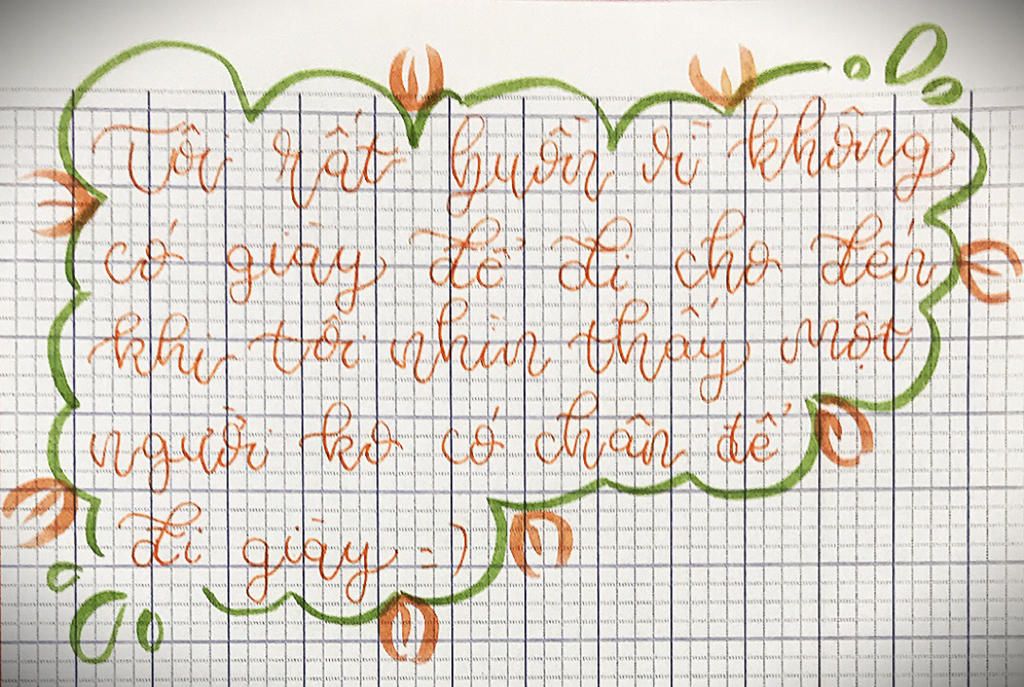 Tôi rất buồn vì không
có giày để đi cho đến
khi tôi nhìn thấy một
người ko có chân để
đi giày =)